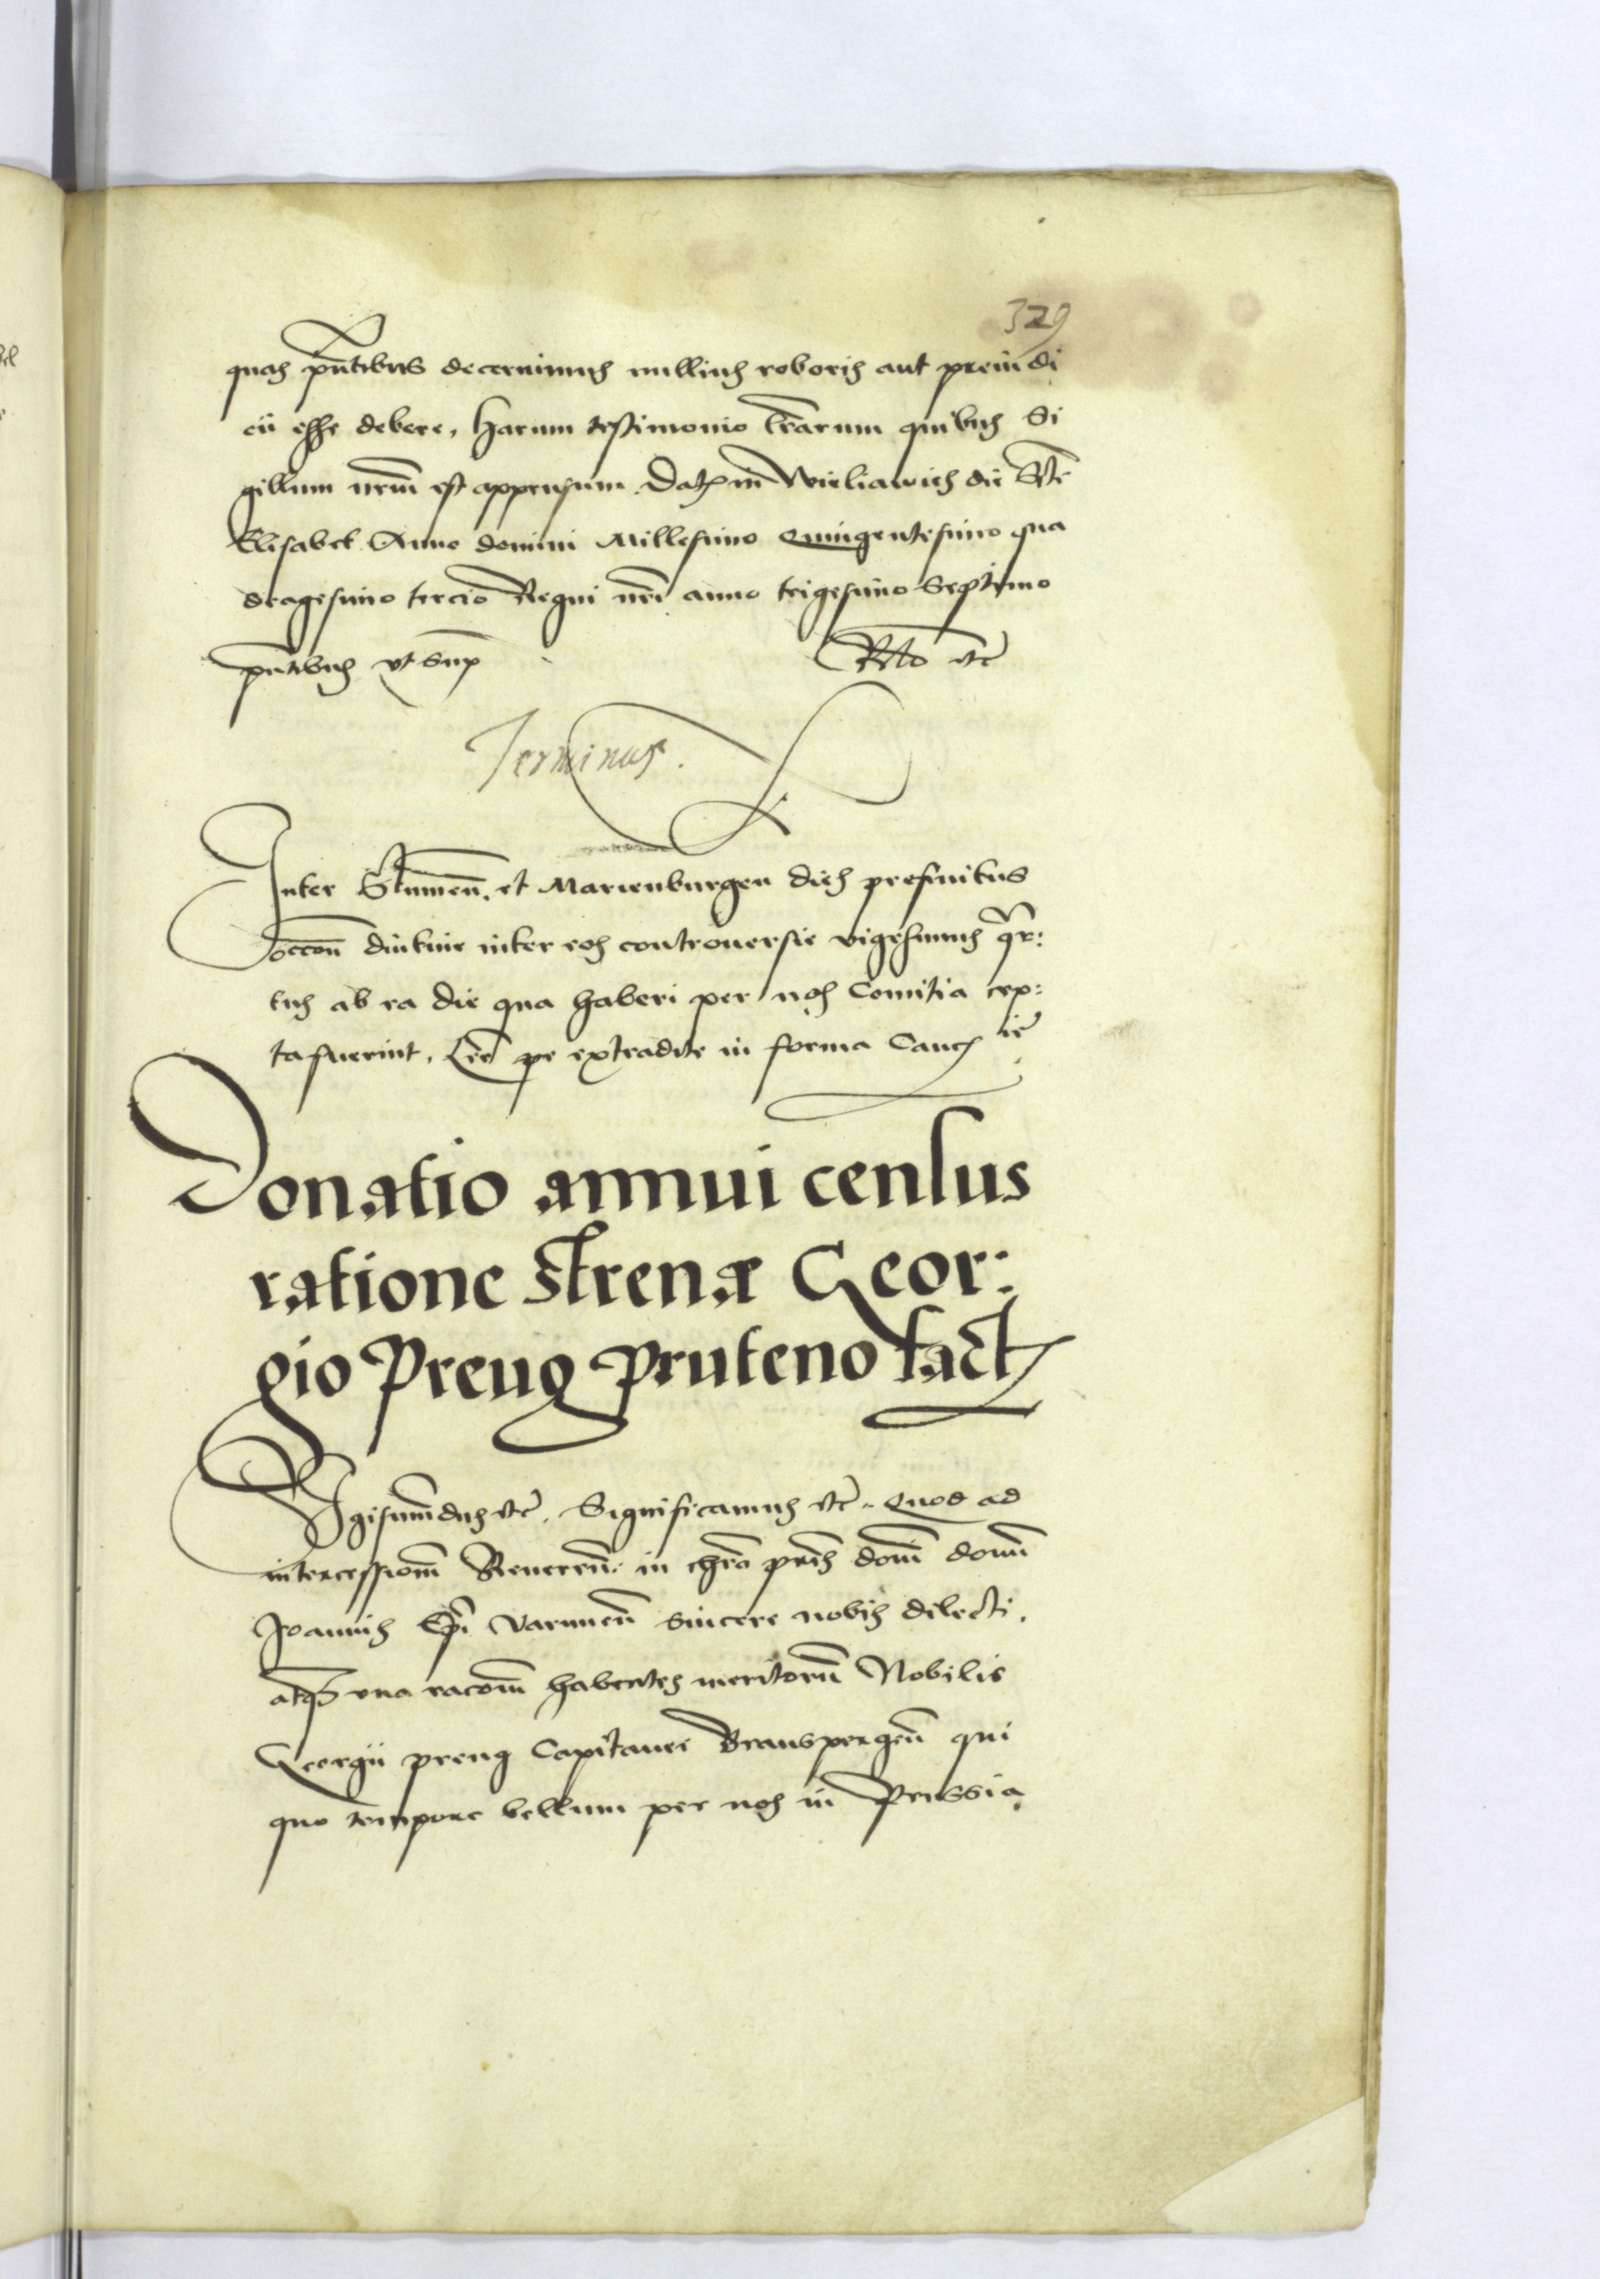 329
quas pn̄tibus decernimus nullius roboris aut preiudi
cū esse debere, harum testimonio lr̄arum quibus Si
gillum nr̄m est appensum. Dat in Wieliawies die Ste
Elisabet Anno domini Millesimo Quingentesimo qua
dragesimo tercio Regni nr̄i anno trigesimo Septimo
pn̄tibus vt Sup Rl̄o etc̄
Terminus.
Inter Stumen̄. et Marienburgen dies prefinitus
occon̄ diutine inter eos controuersie vigesimus qr:
tus ab ea die qua haberi per nos Comitia cep:
ta fuerint. Lr̄e pe extradite in forma Canc̄ ie
Donatio annui census
ratione strenæ Geor:
gio Preug Pruteno fact
Sigismūdus etc̄. Significamus etc̄. Quod ad
intercessionē Reueren̄. in chr̄o pr̄is dom̄i domī
Joannis Epī Varmien̄ Sincere nobis dilecti.
atqз vna racōm habentes meritorū Nobilis
Georgii preug Capitanei Braunspergen̄ qui
quo tempore bellum per nos in Prussia